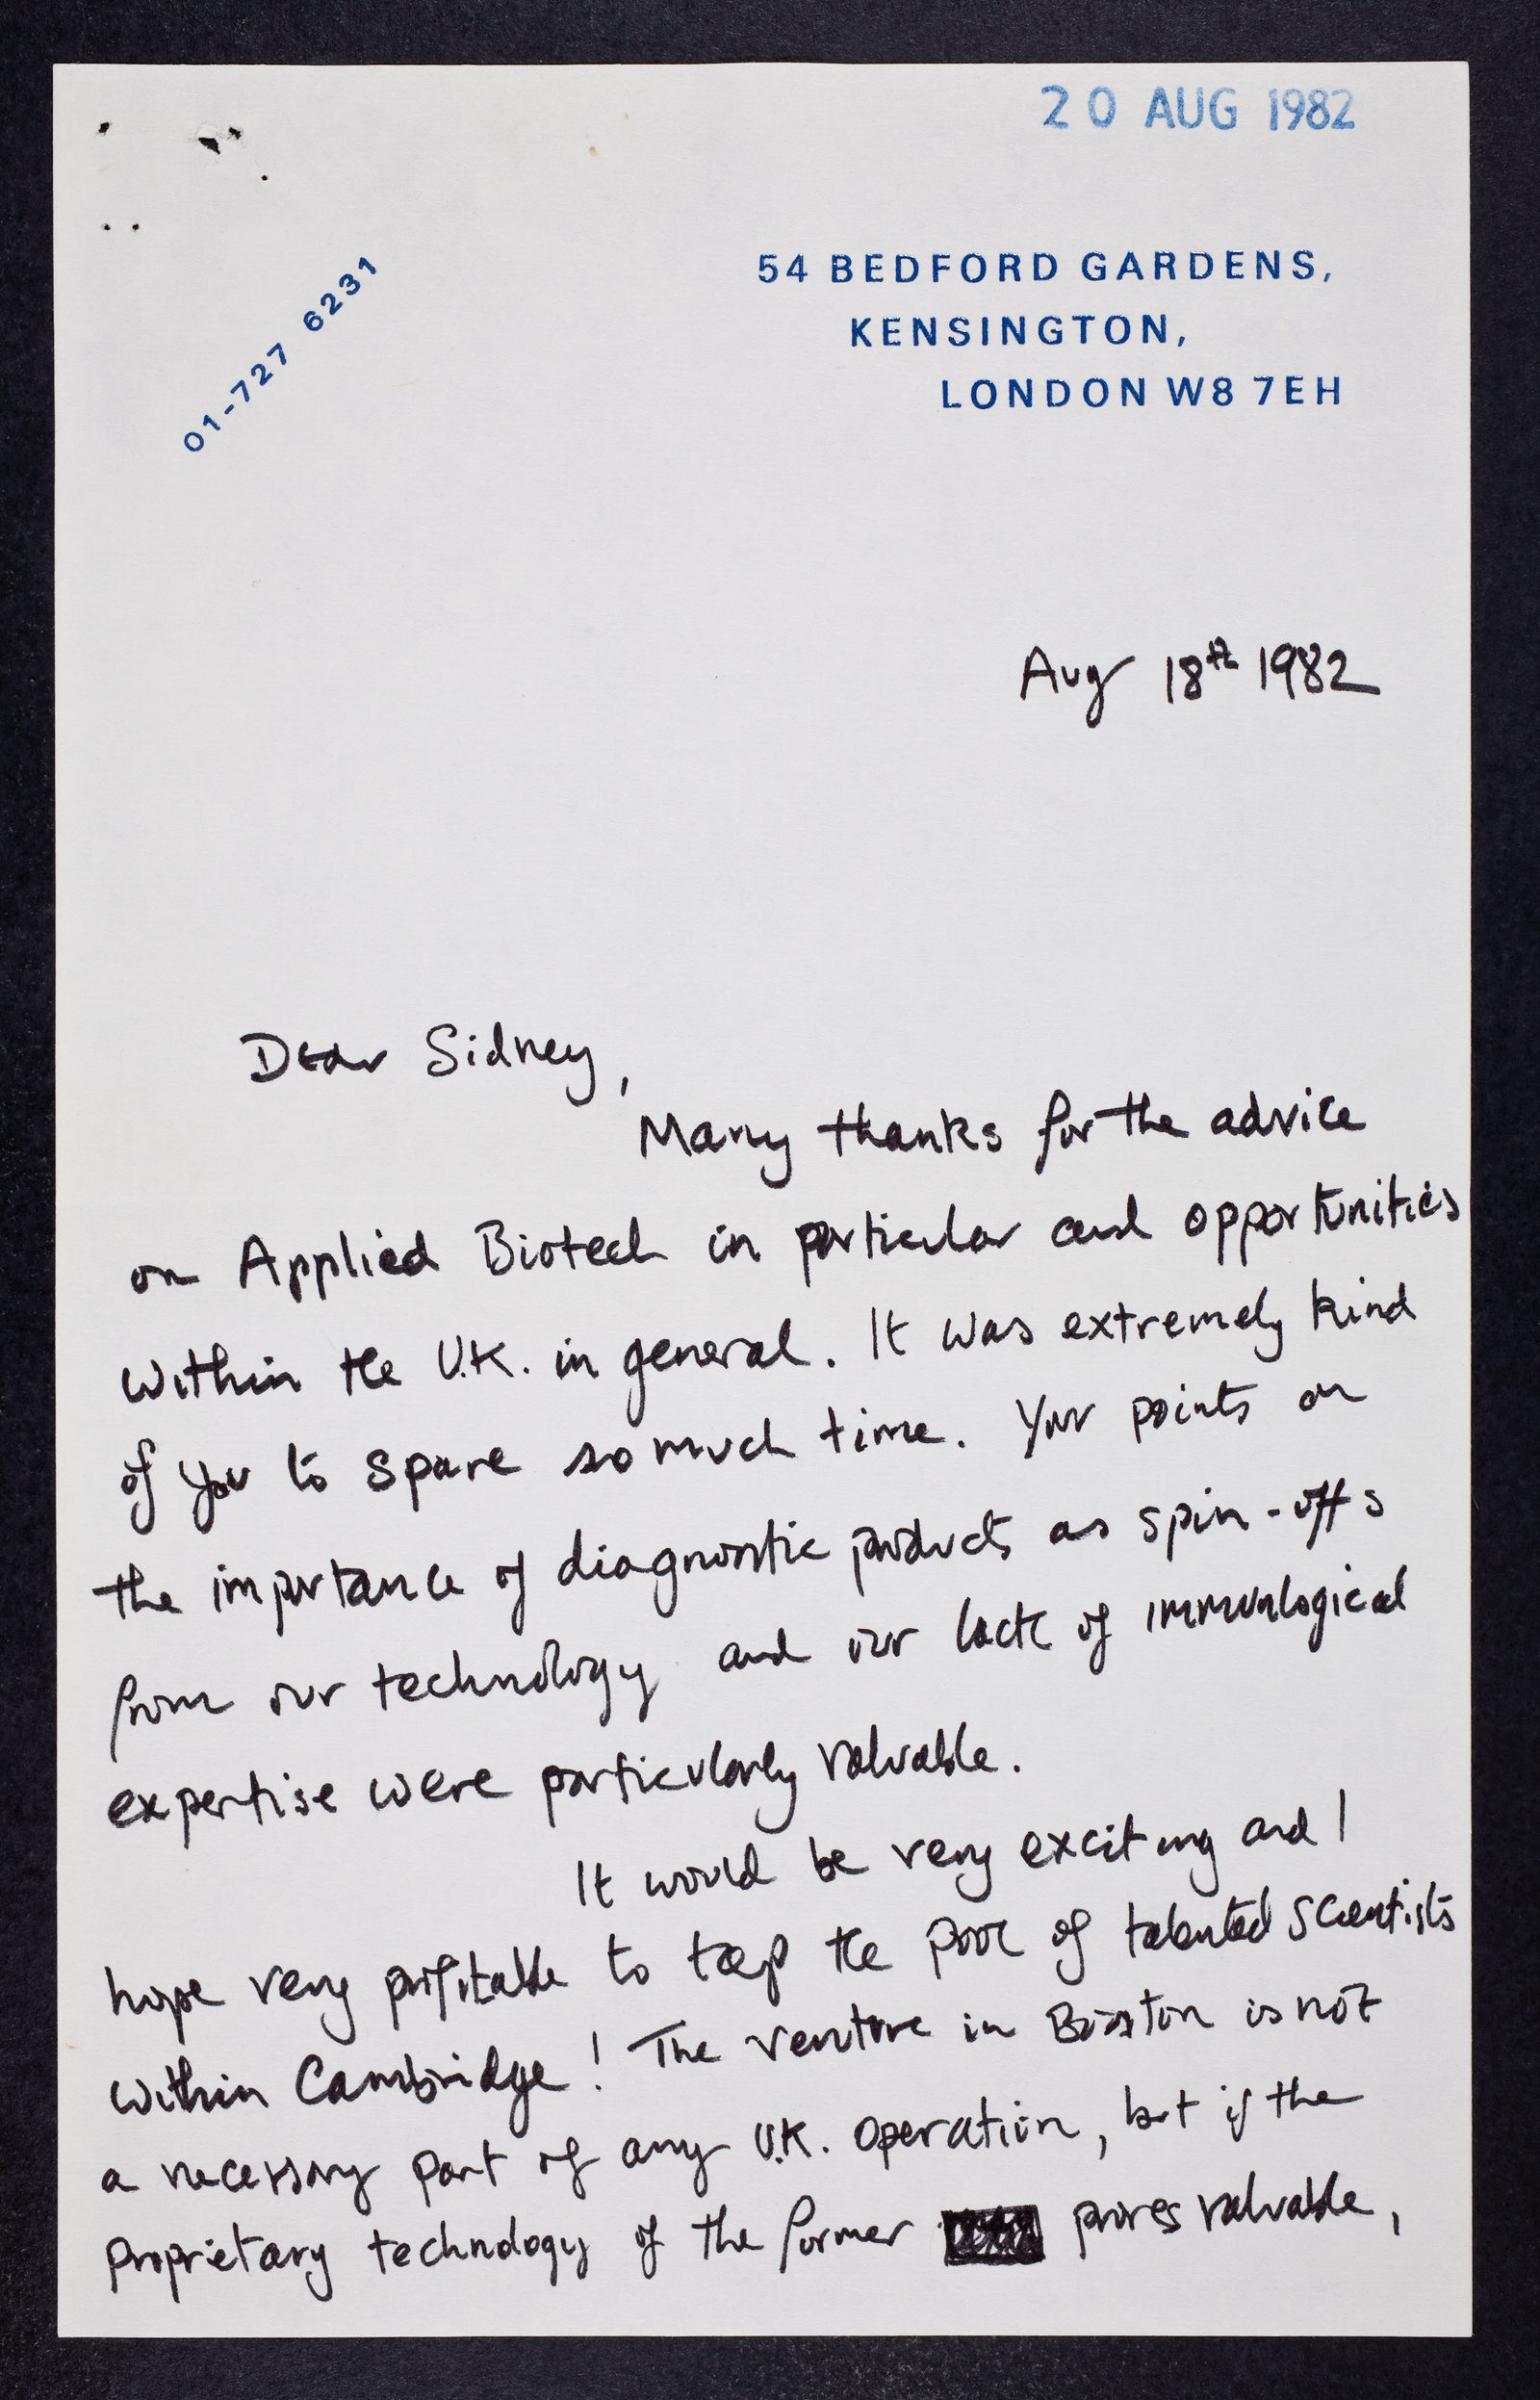 20 AUG 1982
01-727 6231
54 BEDFORD GARDENS,
KENSINGTON,
LONDON W8 7EH
Aug 18th 1982
Dear Sidney,
Many thanks for the advice
on Applied Biotech in particular and opportunities
within the U.K. in general. It was extremely kind
of you to spare so much time. Your points on
the importance of diagnostic products as spin-offs
from our technology and our lack of immunological
expertise were particularly valuable.
It would be very exciting and I
hope very profitable to tap the pool of talented scientists
within Cambridge! The venture in Boston is not
a necessary part of any U.K. operation, but if the
proprietary technology of the former proves valuable,